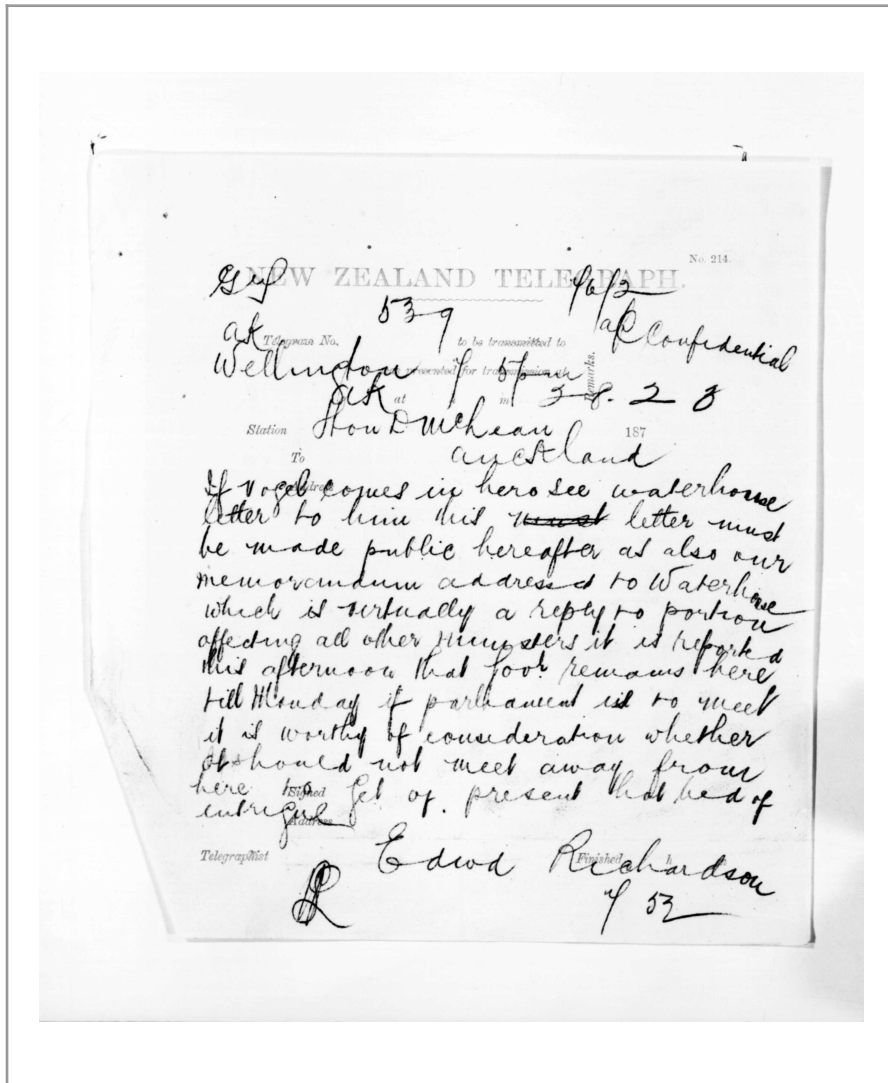 No. 214.
NEW ZEALAND TELEGRAPH.
539
ak Telegram No. to be transmitted to
Confidential
Wellington presented for transmission
Remarks.
ak at m 28. 2 3
Station Hon D McLean 187
To auckland
Address
If Vogel comes in hero see waterhouse
letter to him his must letter must
be made public hereafter as also our
memorandum addressed to Waterhouse
which is virtually a reply to portion
affecting all other ministers it is reported
this afternoon that Govr remains here
till Monday if parliament is to meet
it is worthy of consideration whether
it should not meet away from
here to get of. present hot bed of
Signed
intrigue
Address
Telegraphist Edwd Richardson
Finished h